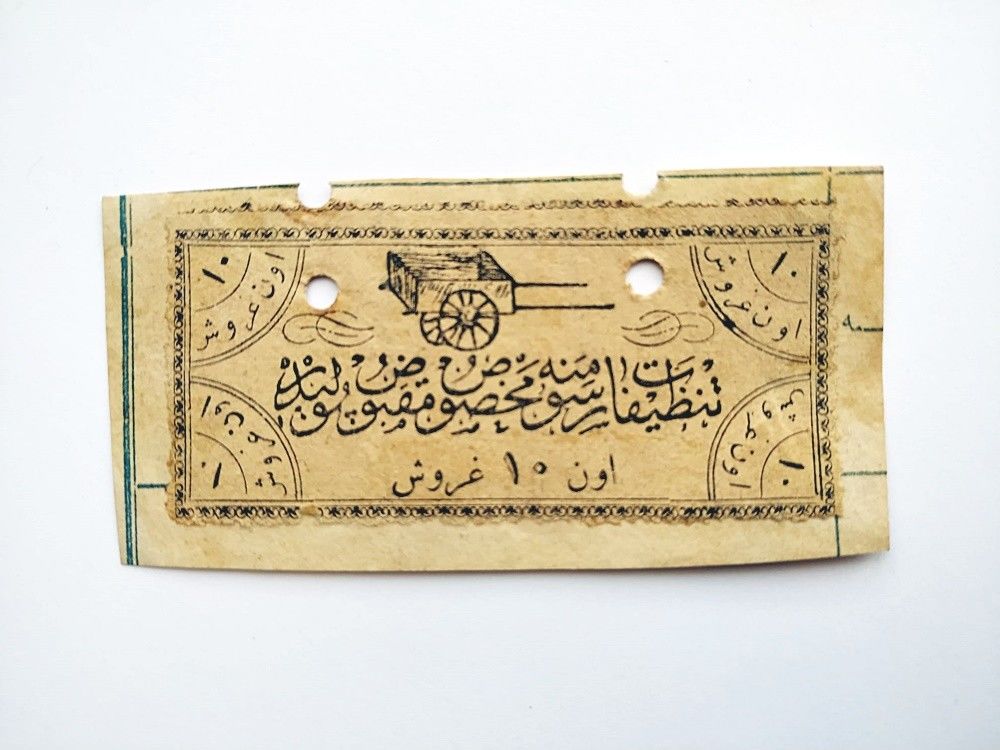 ١٠
اون غروش
١٠
اون غروش
تنظیفات رسومنه مخصوص مقبوض پولیدر
اون ١٠ غروش
١٠
اون غروش
١٠
اون غروش